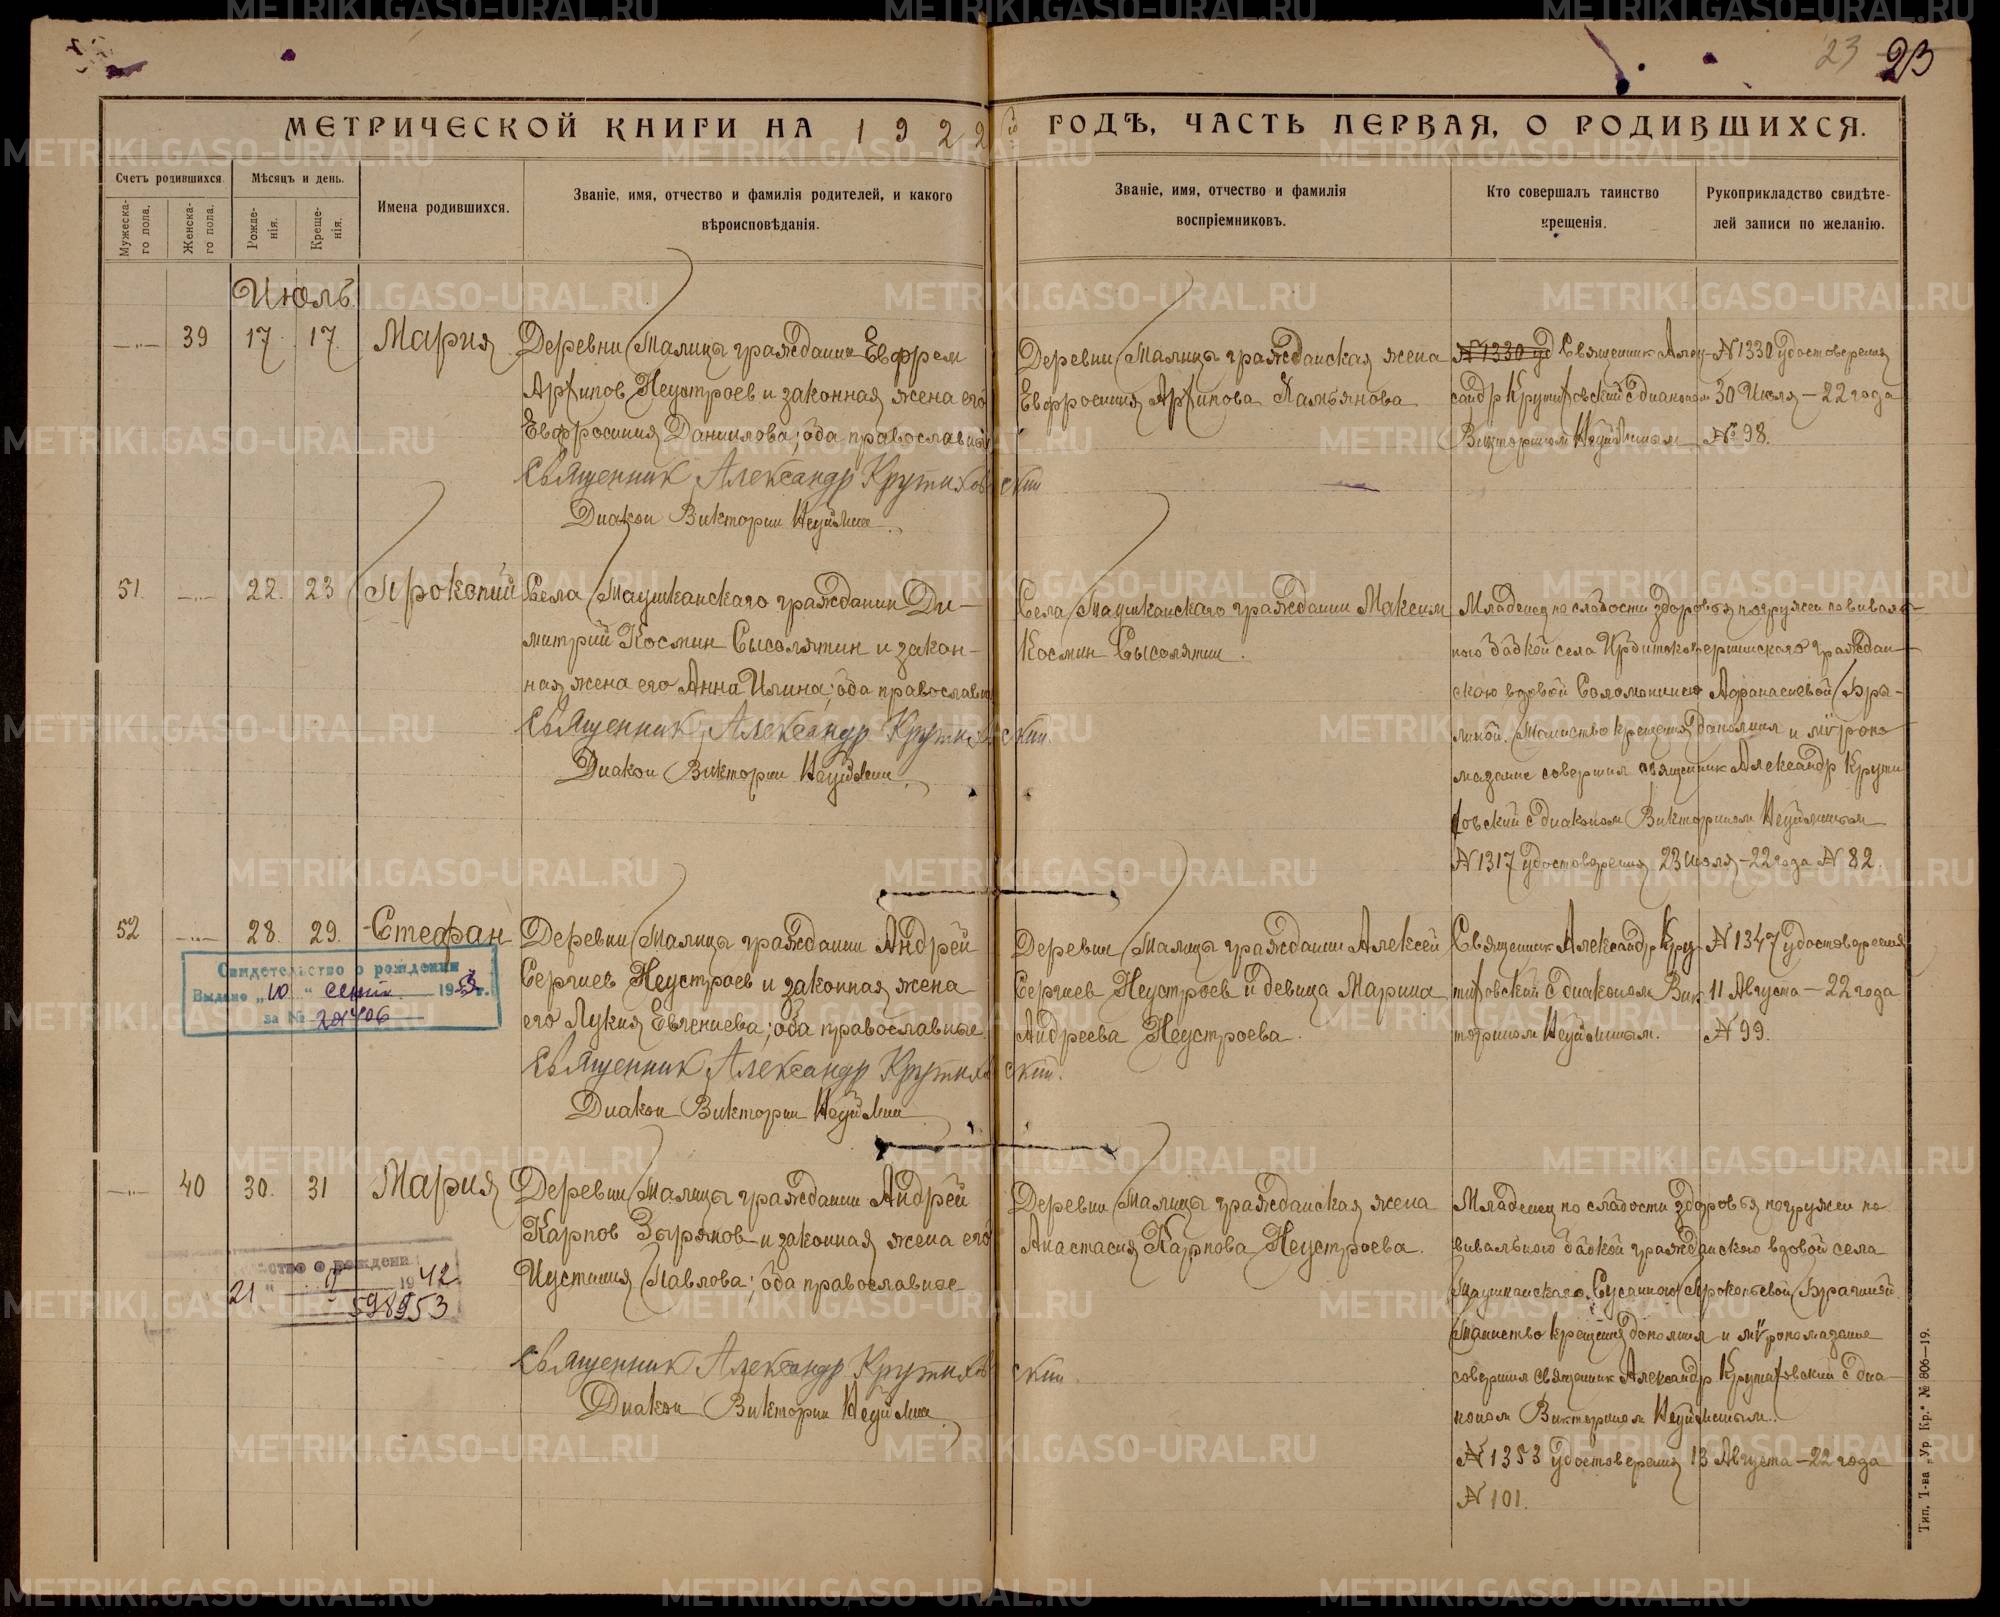 23 23
МЕТРИЧЕСКОЙ КНИГИ НА 1922 й ГОДЪ, ЧАСТЬ ПЕРВАЯ, О РОДИВШИХСЯ.
Счетъ родившихся.
Мужеска-
го пола.
Женска-
го пола.
Мѣсяцъ и день.
Рожде-
нія.
Креще-
нія.
Имена родившихся.
Званіе, имя, отчество и фамилія родителей, и какого
вѣроисповѣданія.
Званіе, имя, отчество и фамилія
воспріемниковъ.
Кто совершалъ таинство
крещенія.
Рукоприкладство свидѣте-
лей записи по желанію.
Июль
39 17 17 Мария
Деревни Талицы гражданин Евфрем
Архипов Неустроев и законная жена его
Евфросиния Даниилова; оба православные
Священник Александр Крутиховский
Диакон Викторин Неуймин
Деревни Талицы гражданская жена
Евфросиния Архипова Лалетьянова
N 1330 уд Священник Алек-
сандр Крутиховский с диаконом
Викторином Неуйминым
N 1330 удостоверения
30 Июля - 22 года
№ 98.
51. 22. 23 Прокопий
Села Таушканского гражданин Ди-
митрий Космин Сысолятин и закон-
ная жена его Анна Ильина; оба православны
Священник Александр Крутиховский
Диакон Викторин Неуймин
Села Таушканского гражданин Максим
Космин Сысолятин.
Младенец по слабости здоровья погружен повиваль-
ною бабкой села Ирбитско-вершинского граждан-
скою вдовой Соломонией Афанасиевой Бра-
гиной. Таинство крещения дополнил и мѵропо-
мазание совершил священник Александр Крути-
ховский с диаконом Викторином Неуйминым
N 1317 удостоверения 23 июля - 22 года N 82.
52 28. 29. Стефан
Деревни Талицы гражданин Андрей
Сергиев Неустроев и законная жена
его Лукия Евгениева; оба православные
Священник Александр Крутиховский.
Диакон Викторин Неуймин
Деревни Талицы гражданин Алексей
Сергиев Неустроев и девица Марина
Андреева Неустроева.
Священник Александр Кру-
тиховский с диаконом Вик-
торином Неуйминым.
N 1347 удостоверения
11 Августа - 22 года
N 99.
Свидетельство о рождении
Выдано „10“ сент. 1953 г.
за №
40 30. 31 Мария
Деревни Талицы гражданин Андрей
Карпов Зырянов и законная жена его
Иустиния Павлова; оба православные
Священник Александр Крутиховский
Диакон Викторин Неуймин
Деревни Талицы гражданская жена
Анастасия Карпова Неустроева.
Младенец по слабости здоровья погружен по-
вивальною бабкой гражданскою вдовой села
Таушканского Сусанною Прокопьевой Брагиной.
Таинство крещения дополнил и мѵропомазание
совершил священник Александр Крутиховский с диа-
коном Викторином Неуйминым.
N 1353 удостоверения 13 Августа - 22 года
N 101.
ство о рождени
21 " IV 1942
598953
Тип. Т-ва „Ур. Кр.“ № 806—19.
METRIKI.GASO-URAL.RU